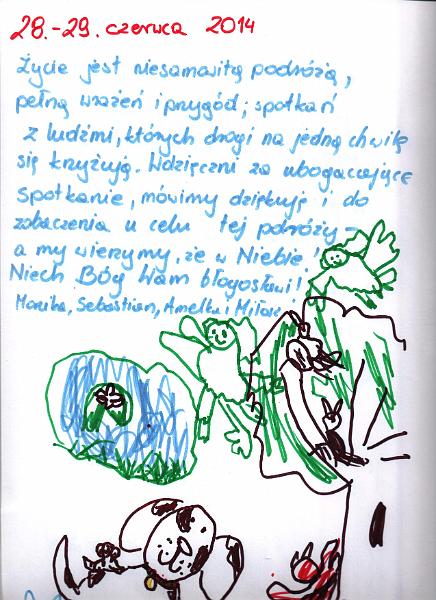 28.-29. czerwca 2014
Życie jest niesamowitą podróżą,
pełną wrażeń i przygód; spotkań
z ludźmi, których drogi na jedną chwilę
się krzyżują. Wdzięczni za ubogacające
spotkanie, mówimy dziękuję i do
zobaczenia u celu tej podróży -
a my wierzymy, że w Niebie!
Niech Bóg Wam błogosławi!
Monika, Sebastian, Amelka i Miłosz